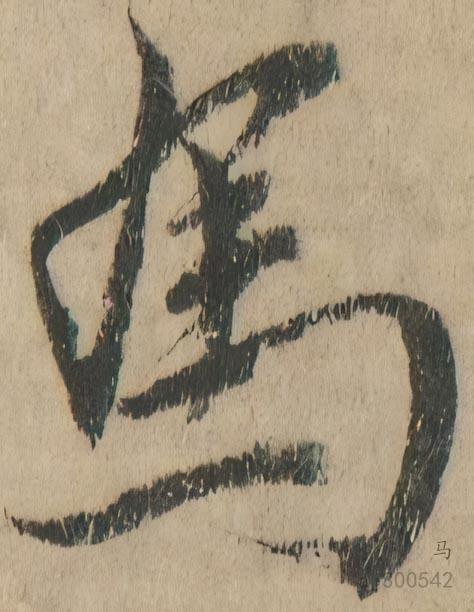 馬
马
300542